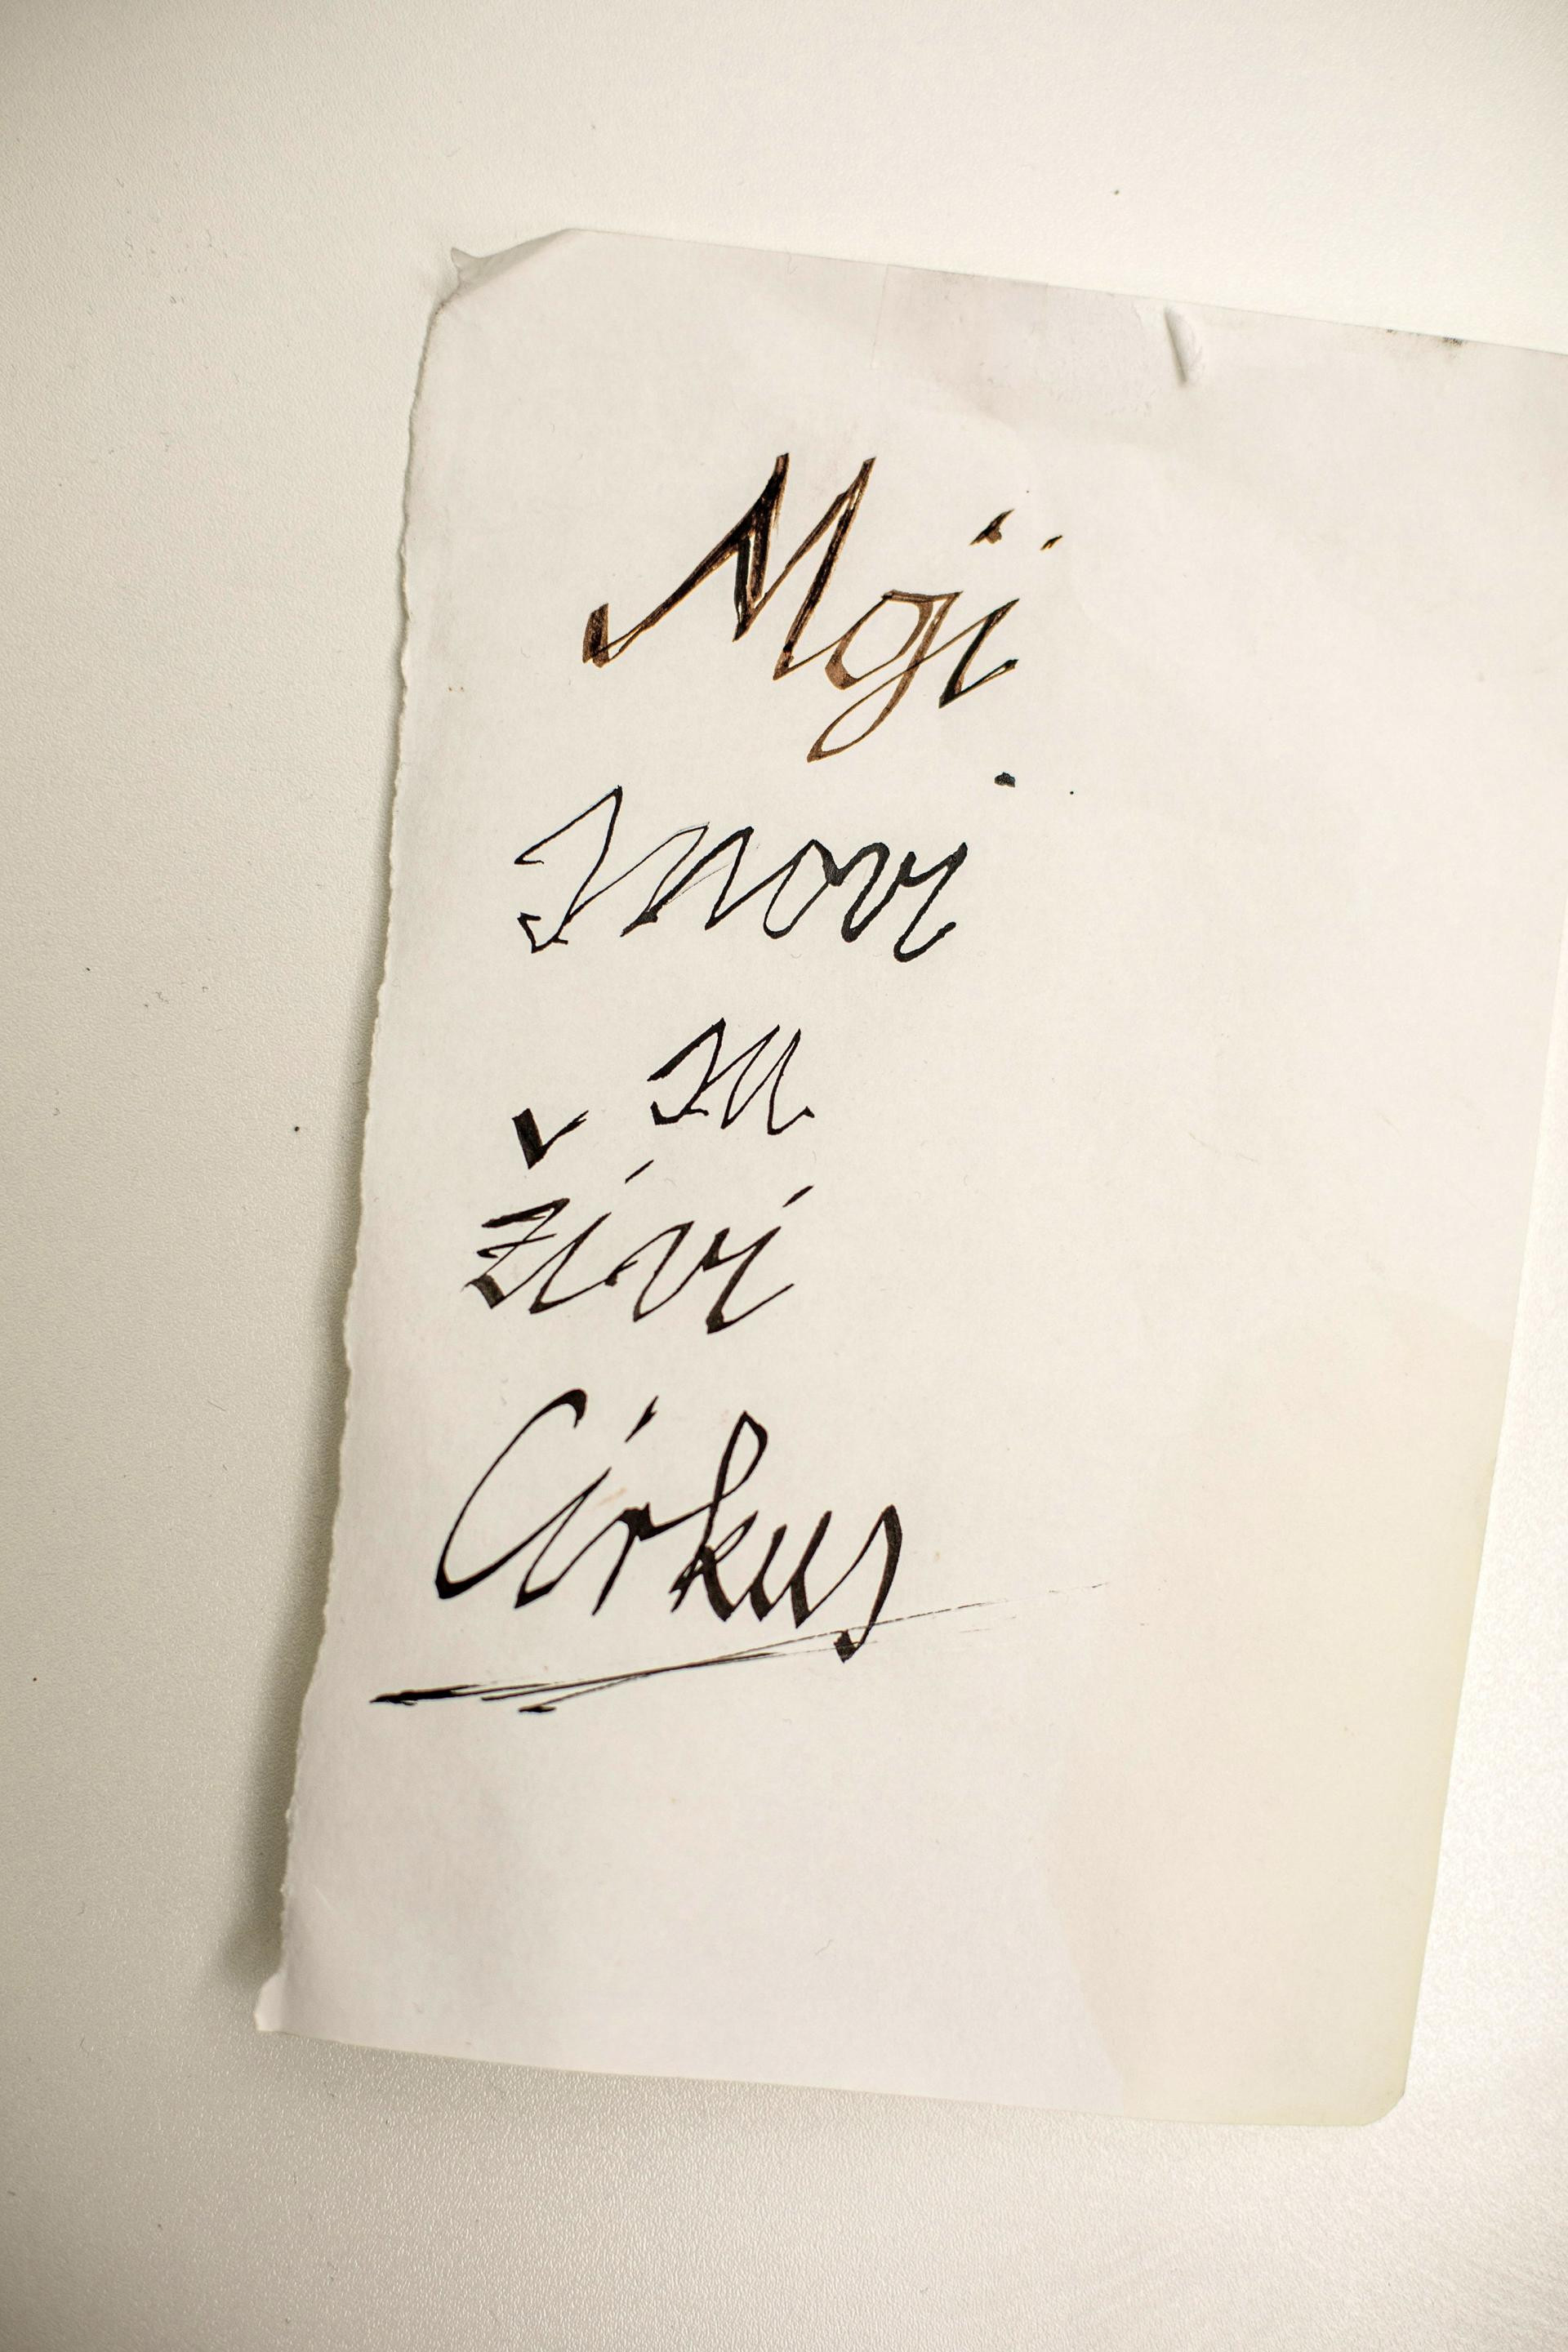 Moji
Snovi
su
živi
Cirkus